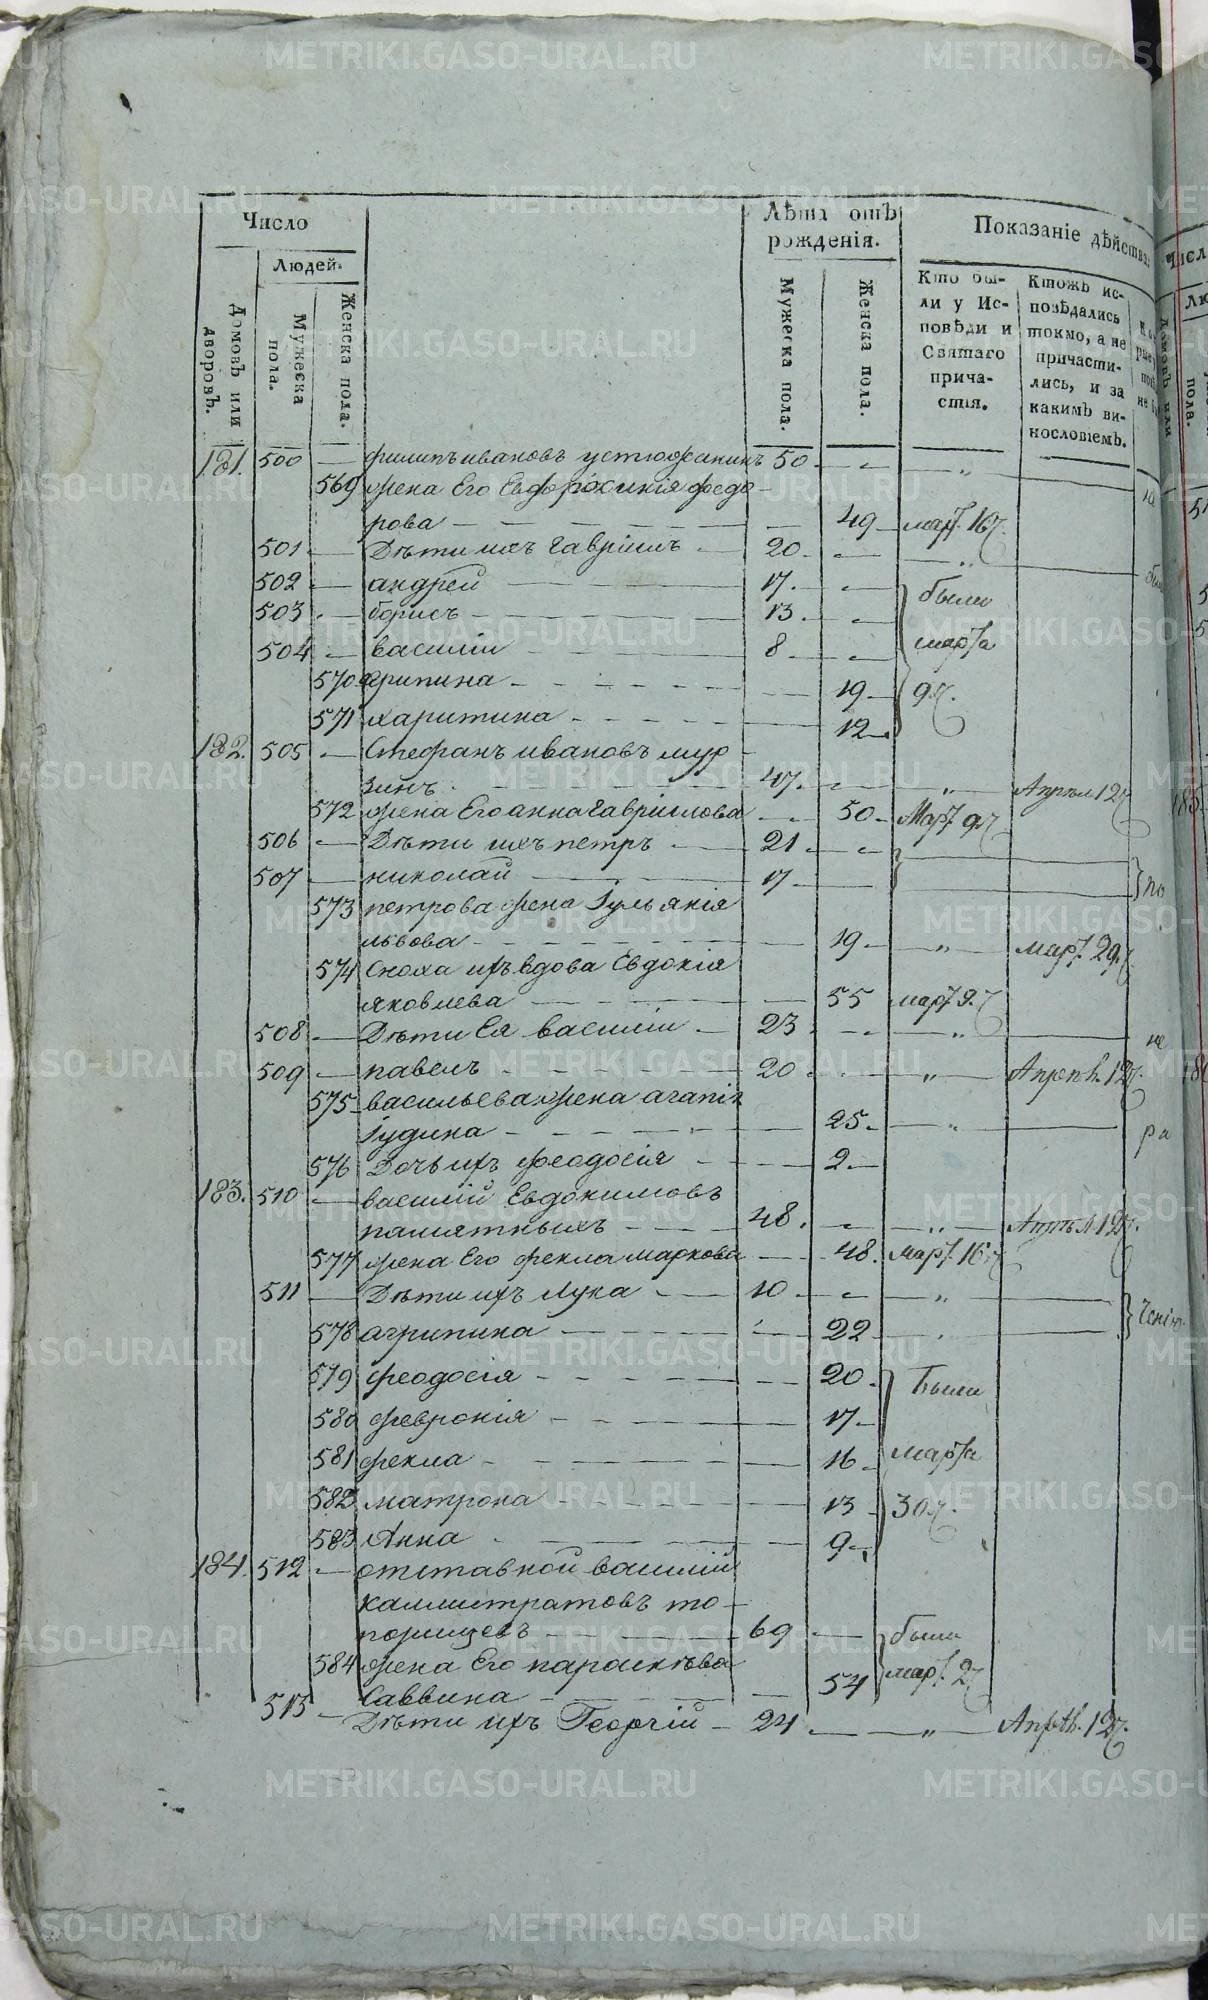 METRIKI.GASO-URAL.RU
Число
Людей.
Домовъ или дворовъ.
Мужеска пола.
Женска пола.
Лѣта отъ рожденія.
Мужеска пола.
Женска пола.
Показаніе дѣйства
Кто были у Исповѣди и Святаго причастія.
Ктожъ исповѣдались токмо, а не причастились, и за какимъ винословіемъ.
181. 500 — филипъ ивановъ устюжанинъ 50. — „
569 жена Его Евфросинія федо-
рова — 49 — март. 16.
501 — Дѣти ихъ Гавріилъ — 20. — „
502 — андрей — 17. — были
503 — борисъ — 13. —
504 — василій — 8 — марта
570 агрипина — 19 — 9.
571 харитина — 12 —
182. 505 — Стефанъ ивановъ мур-
зинъ — 47. — „ Апрѣл 12
572 жена Его анна Гавріилова — 50 — Март 9.
506 — Дѣти ихъ петръ — 21 —
507 — николай — 17 — по
573 петрова жена Іульянія
львова — 19 — „ март. 29.
574 Сноха ихъ вдова Евдокія
яковлева — 55 март 9.
508 — Дѣти Ея василій — 23 — „ — не
509 — павелъ — 20 — „ Апрель. 12.
575 васильева жена агапія
Іудина — 25 — „ — ра
576 Дочь ихъ феодосія — 2 —
183. 510 — василій Евдокимовъ
памятныхъ — 48. — „ Апрѣл 12.
577 жена Его фекла маркова — 48. март. 16
511 — Дѣти ихъ Лука — 10 — „
578 агрипина — 22 —
579 феодосія — 20 — Были
580 февронія — 17 —
581 фекла — 16 — марта
582 матрона — 13 — 30.
583 Анна — 9 —
184. 512 — отставной василій
каллистратовъ то-
порищевъ — 69 — были
584 жена Его параскѣва
Саввина — 54 март. 2
513 — Дѣти ихъ Георгій — 24 — „ — Апрѣл. 12.